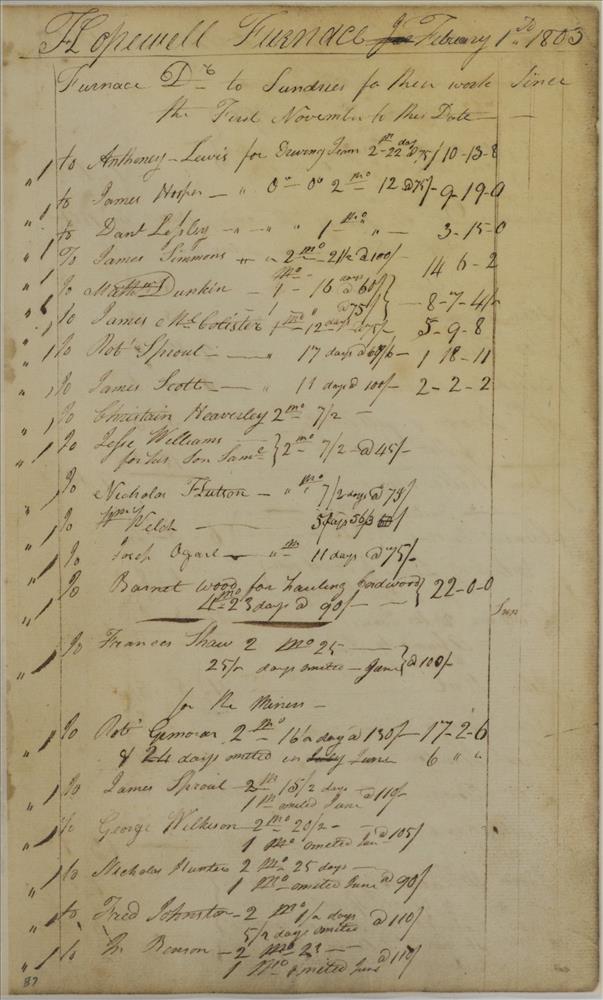 Hopewell Furnace February 1st 1803
Furnace Dr to Sundries for their work Since
the First November to this Date
" to Anthoney Lewis for Driving Team 2 mo 22 days @ 75/ 10-13-8
" to James Hosper " 0" 0" 2 mo 12 @ 75/ 9-19-0
" to Danl Lesley " " 1 mo " 3-15-0
" To James Simmons " 2 mo 21/2 @ 100/ 14 6-2
" To Matthw Dunkin 1 mo 16 days @ 60/
" to James McColister 1 mo 12 days @ 75/ 8-7-4
5-9-8
" To Robt Sproul " 17 days @ 67/6 1 18-11
" To James Scott " 11 days @ 100/ 2-2-2
" To Christain Heaverley 2 mo 7/2
" To Jesse Williams
for his Son Saml 2 mo 7/2 @ 45/
" To Nicholas Hutson " mo 7/2 days @ 75/
" To Wm Welch 5 days 56/3
" To Joseph Ogan " m 11 days @ 75/
" To Barnet Wood for hauling Cordwood 22-0-0
4 mo 23 days @ 90/
" To Frances Shaw 2 Mo 25
25/2 days omited June @ 100/
for the Miners
" To Robt Gemorar 2 mo 16/2 day @ 130/ 17-2-6
& 24 days omited in July June 6 " "
" To James Sproul 2 m 15/2 days
1 m omited June @ 110/
" To George Wilkison 2 mo 20/2
1 Mo omited June @ 105/
" to Nicholas Hunter 2 Mo 25 days
1 Mo omited June @ 90/
" to Fred Johnston 2 Mo 1/2 days
5/2 days omited @ 110/
" to Benson 2 Mo 23
1 Mo omited June @ 110/
87